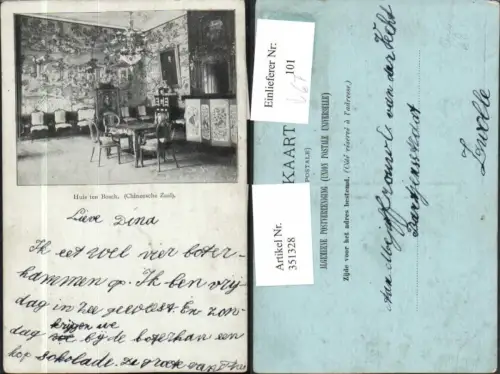 Huis ten Bosch. (Chineesche Zaal).
Lieve Dina
Ik eet wel vier boter-
hammen op. Ik ben vrij
dag in zee geweest. En zon-
dag krijgen we bij de boterham een
kop schokolade. zu groet van
Einlieferer Nr:
101
Artikel Nr.
351328
KAART
POSTALE)
ALGEMEENE POSTVEREENIGING (UNION POSTALE UNIVERSELLE)
Zijde voor het adres bestemd. (Côté réservé à l'adresse.)
Aan Mejuffrouw C. van der Hecht
Zwolle